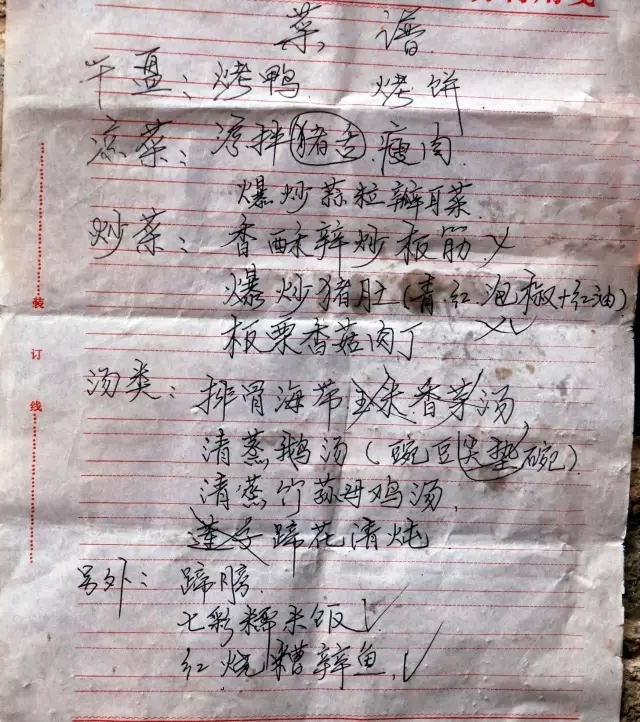 菜谱
午盘：烤鸭 烤饼
凉菜：凉拌猪舌 瘦肉
爆炒蒜粒瓣耳菜
炒菜：香酥辣炒板筋
爆炒猪肚(青.红.泡椒+红油)
板栗香菇肉丁
汤类：排骨海带玉米香菜汤,
清蒸鹅汤(豌豆尖垫碗)
清蒸竹荪母鸡汤,
莲子蹄花清炖
另外：蹄膀
七彩糯米饭
红烧糟辣鱼
装
订
线